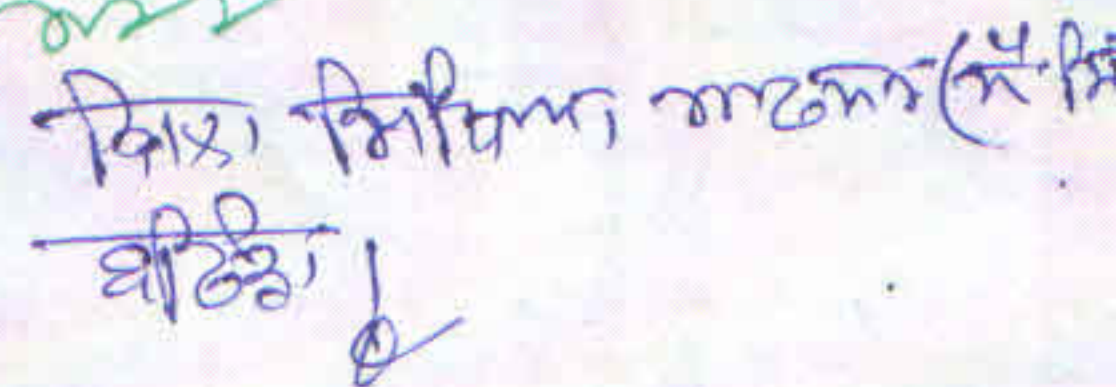 ਜ਼ਿਲਾ ਸਿੱਖਿਆ ਅਫਸਰ (ਸੈ ਸਿੱ
ਬਠਿੰਡਾ।